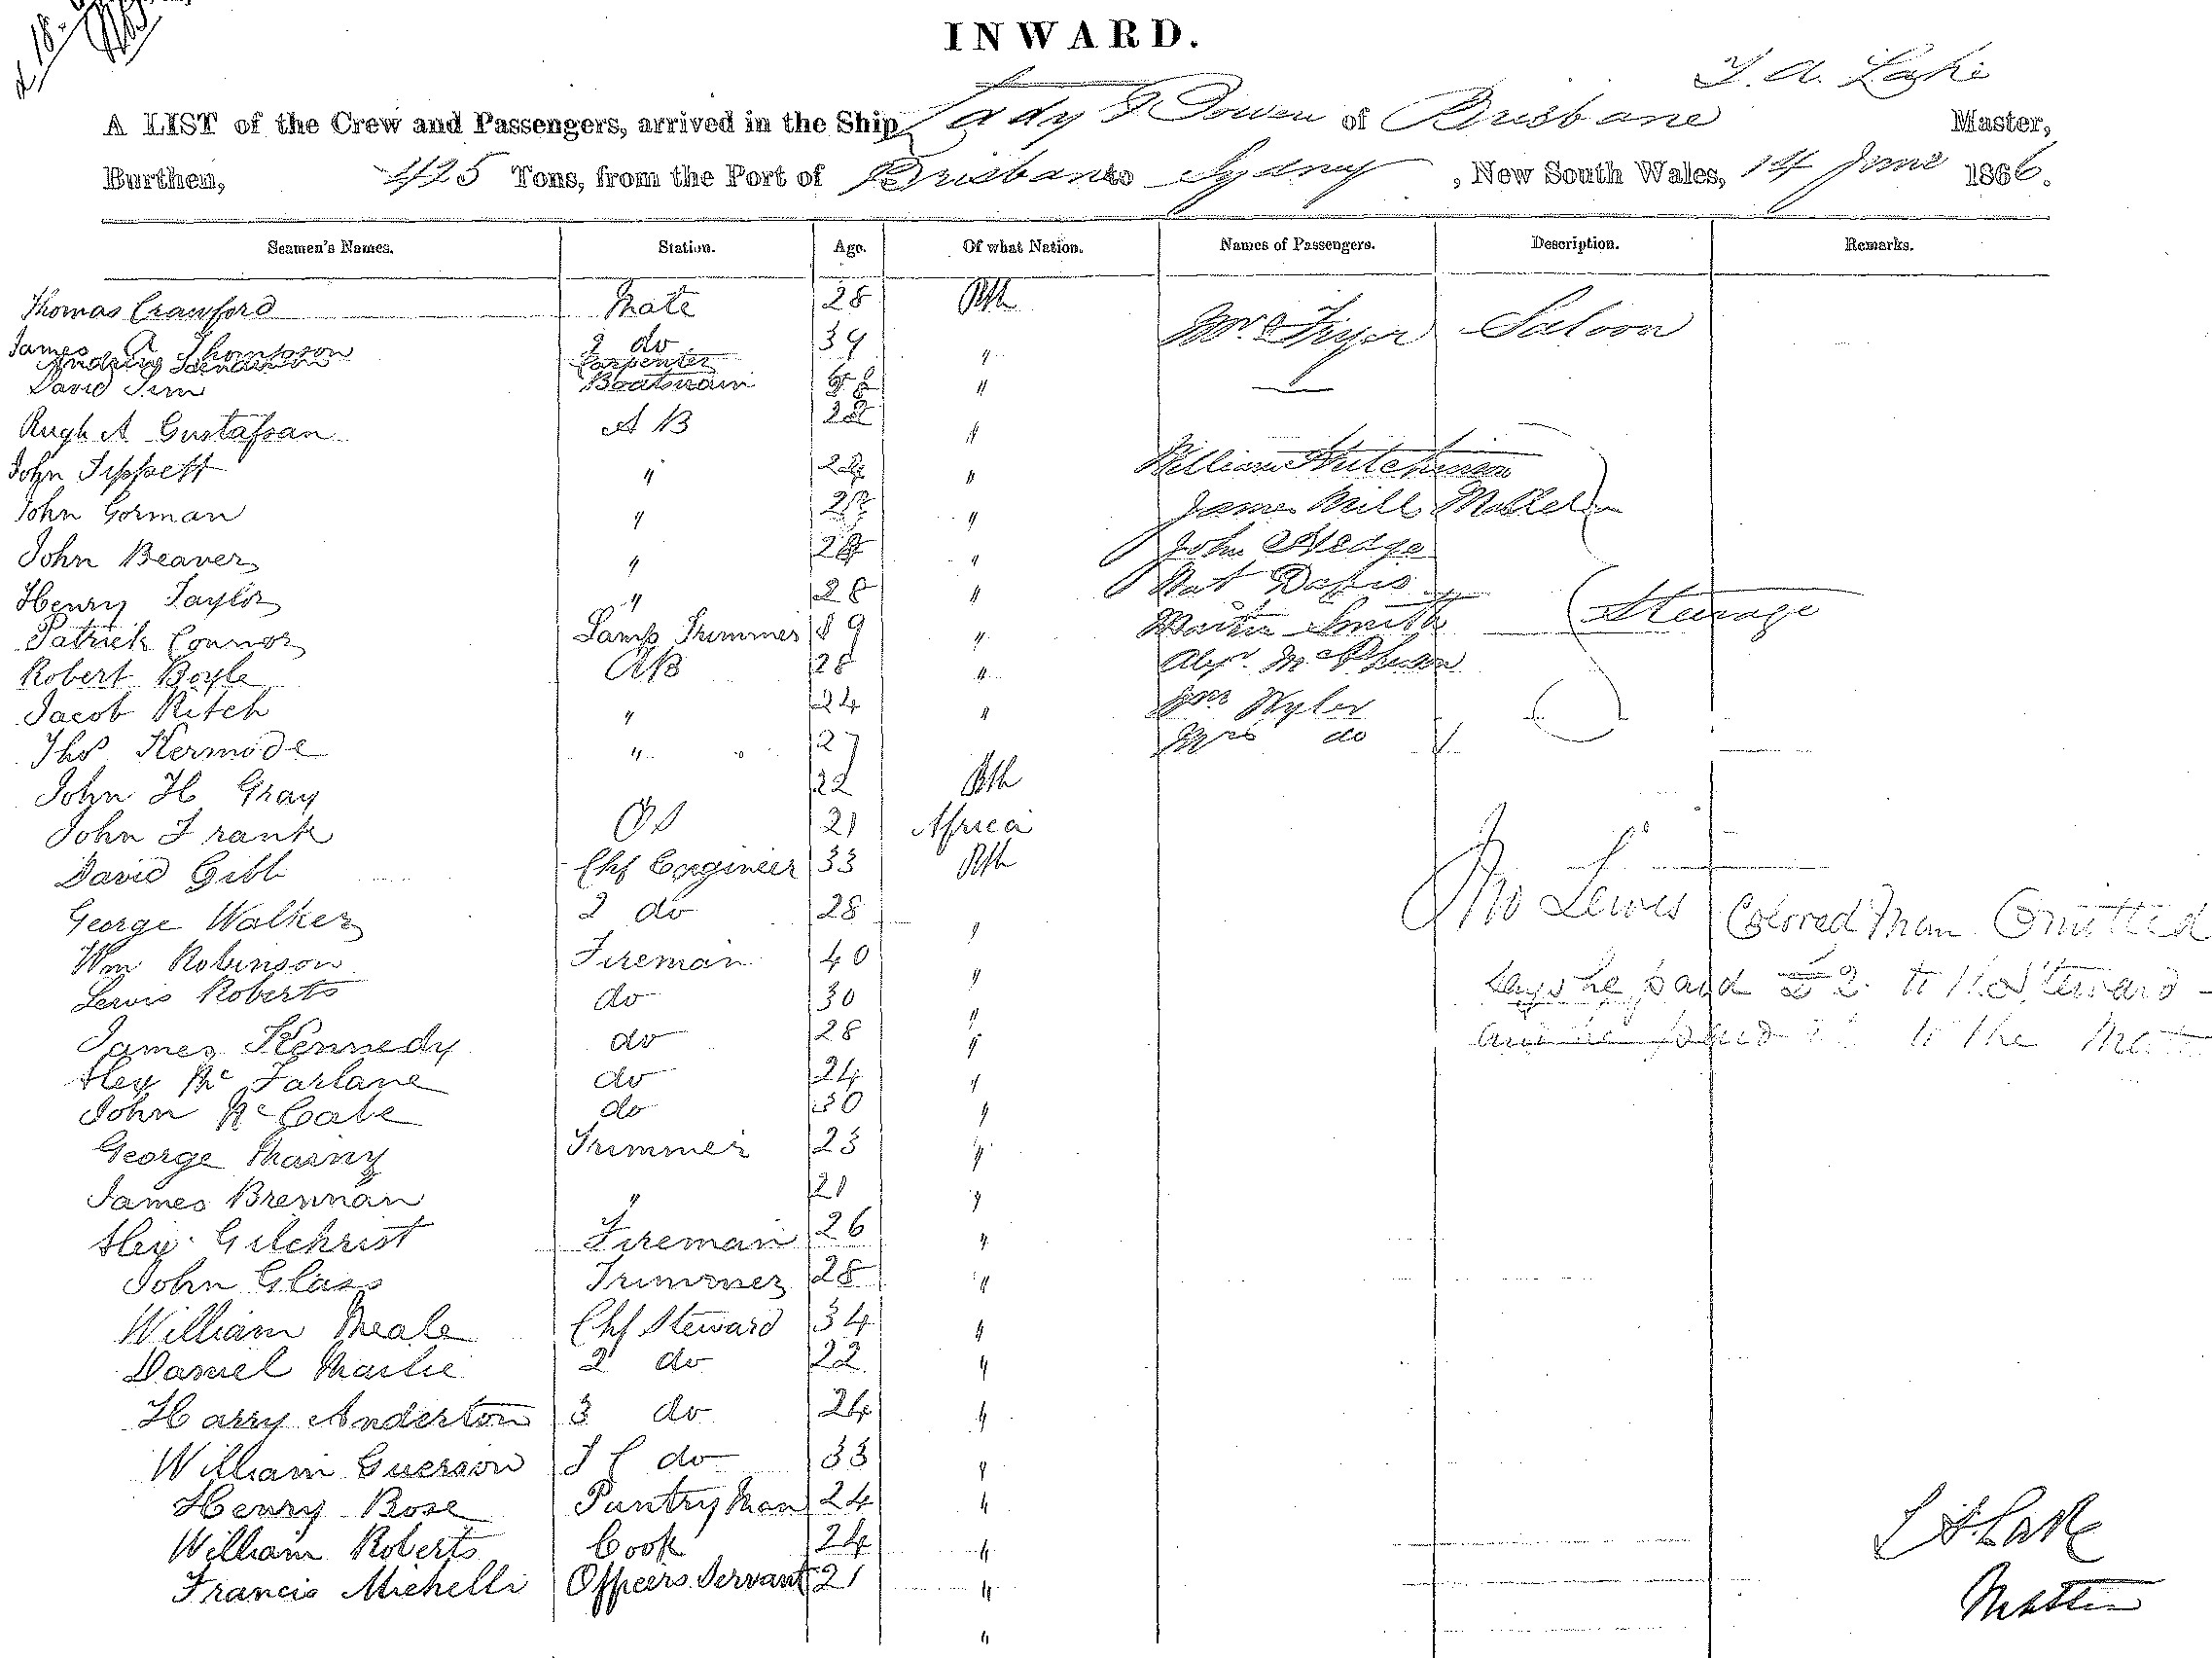 18
INWARD.
T. A. Lake
A LIST of the Crew and Passengers, arrived in the Ship Lady Bowen of Brisbane Master,
Burthen, 425 Tons, from the Port of Brisbane to Sydney, New South Wales, 14 June 1866.
Seamen's Names. Station. Age. Of what Nation. Names of Passengers. Description. Remarks.
Thomas Crawford Mate 28 Bth
Mr Fryer Saloon
James A Thompson 2 do 34 "
Carpenter
David Sim Boatswain "
Hugh A Gustafsan A B 22 "
John Tippett " 24 " William Hutchinson
John Gorman " " James Mill
John Beaver " " John Hedge
Henry Taylor " 28 " Nat Steerage
Patrick Connor Lamp Trimmer 19 " Smith
Robert Boyle AB 28 " Alexr. McPherson
Jacob Ritch " 24 " Wyler
Thos Kermode " 27 Mrs do
John H Gray 22 Bth
John Frank OS 21 Africa
David Gibb Chf Engineer 33 Bth
George Walker 2 do 28 " Jno Lewis Colored Man Omitted
Wm Robinson Fireman 40 "
says he paid £2 to the Steward -
Lewis Roberts do 30 "
James Kennedy do 28 " paid to the
Alex McFarlane do 24 "
John McCabe do 30 "
George Trimmer 23 "
James Brennan " 21 "
Alex. Gilchrist Fireman 26 "
John Glass Trimmer 28 "
William Meale Chf Steward 34 "
Daniel 2 do 22 "
Harry Anderton 3 do 24 "
William Guerson do 33 "
Henry Rose Pantry Man 24 "
William Roberts Cook 24 "
Francis Michelli Officers Servant 21 "
"
T A Lake
Master